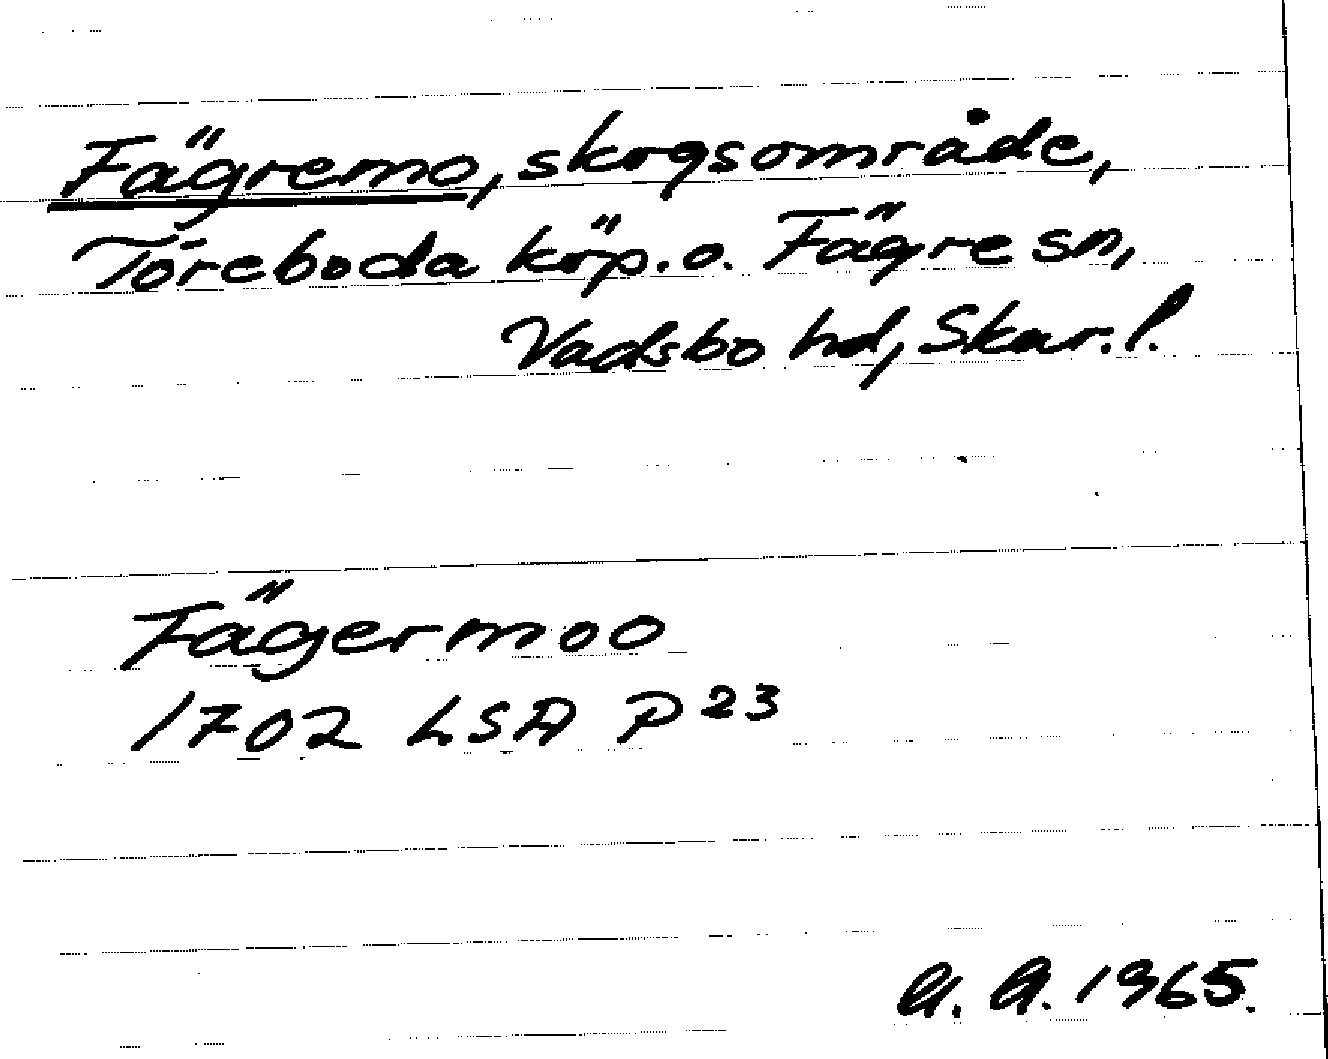 Fägremo, skogsområde,
Töreboda köp. o. Fägre sn,
Vadsbo hd, Skar. l.
Fägermoo
1702 LSA P 23
A. A. 1965.